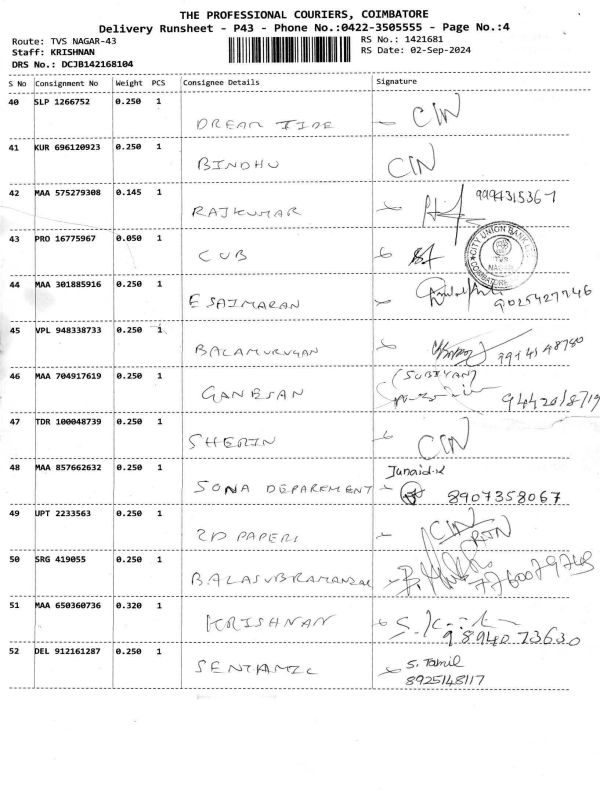 THE PROFESSIONAL COURIERS, COIMBATORE
Delivery Runsheet - P43 - Phone No.:0422-3505555 - Page No.:4
Route: TVS NAGAR-43 RS No.: 1421681
Staff: KRISHNAN RS Date: 02-Sep-2024
DRS No.: DCJB142168104
S No Consignment No Weight PCS Consignee Details Signature
40 SLP 1266752 0.250 1 DREAM TIDE CIN
41 KUR 696120923 0.250 1 BINDHU CIN
42 MAA 575279308 0.145 1 RAJKUMAR 9994315367
43 PRO 16775967 0.050 1 CUB
CITY UNION BANK TVS NAGAR COIMBATORE
44 MAA 301885916 0.250 1 ESAIMARAN 9025427246
45 VPL 948338733 0.250 1 BALAMURUGAN
46 MAA 704917619 0.250 1 GANESAN (SUBIYAN) 9442018719
47 TDR 100048739 0.250 1 SHERIN CIN
48 MAA 857662632 0.250 1 SONA DEPAREMENT Junaid.K 8907358067
49 UPT 2233563 0.250 1 2D PAPERS CIN RTN
50 SRG 419055 0.250 1 BALASUBRAMANIAN 7760079768
51 MAA 650360736 0.320 1 KRISHNAN 9894073630
52 DEL 912161287 0.250 1 SENTAMIL S. Tamil
8925148117